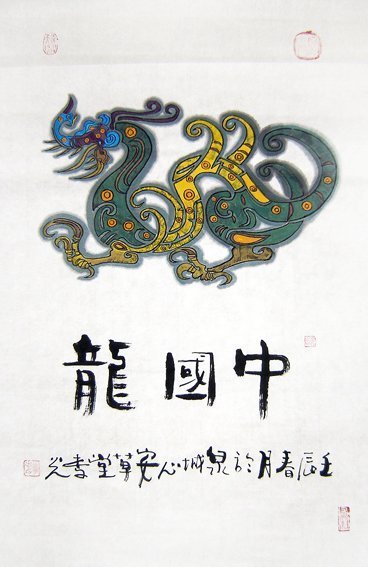 中國龍
壬辰春月於泉城心安草堂李光